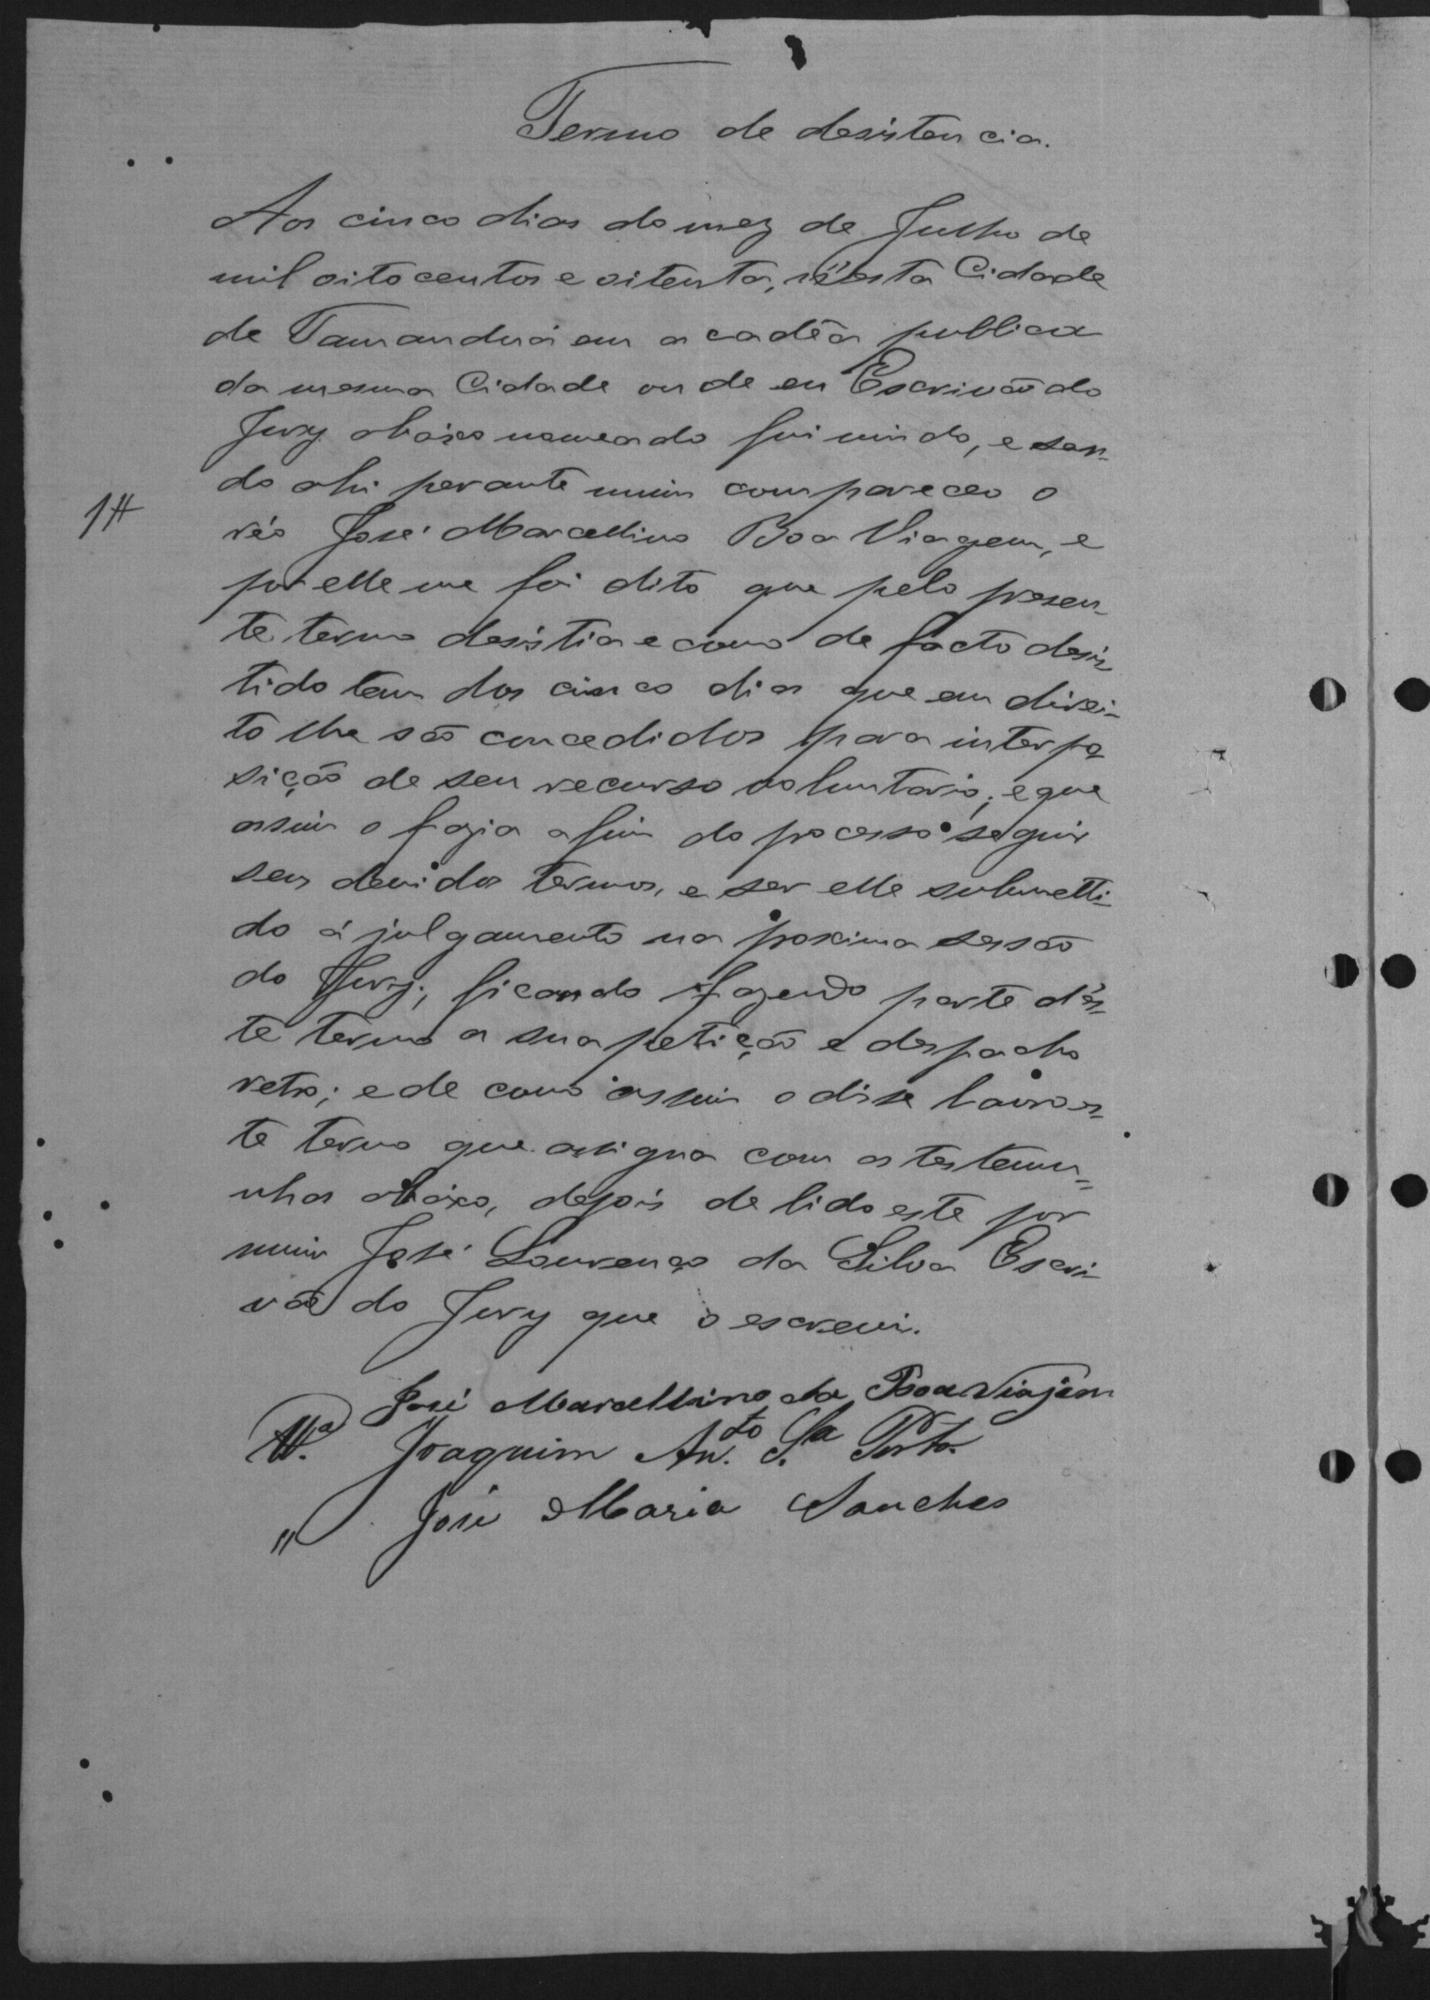 Termo de desistencia.
Aos cinco dias do mez de Julho de
mil oitocentos e oitenta, n'esta Cidade
de Tamanduá em a cadêa publica
da mesma Cidade onde eu Escrivão do
Jury abaixo nomeado fui vindo, e sen-
do ahi perante mim compareceo o
réo José Marcellino Boa Viagem, e
por elle me foi dito que pelo presen-
te termo desistia e como de facto desis-
tido tem dos cinco dias que em direi-
to lhe são concedidos para interpo-
sição de seu recurso voluntario; e que
assim o fazia afim do processo seguir
seus devidos termos, e ser elle submetti-
do á julgamento na proxima sessão
do Jury; ficando fazendo parte dés-
te termo a sua petição e despacho
retro; e de como assim o disse lavro es-
te termo que assigna com as testemu-
nhas abaixo, depois de lido este por
mim José Lourenço da Silva Escri-
vão do Jury que o escrevi.
José Marcellino da Boa Viajem
Joaquim An.to S.a Porto
" José Maria Sanches